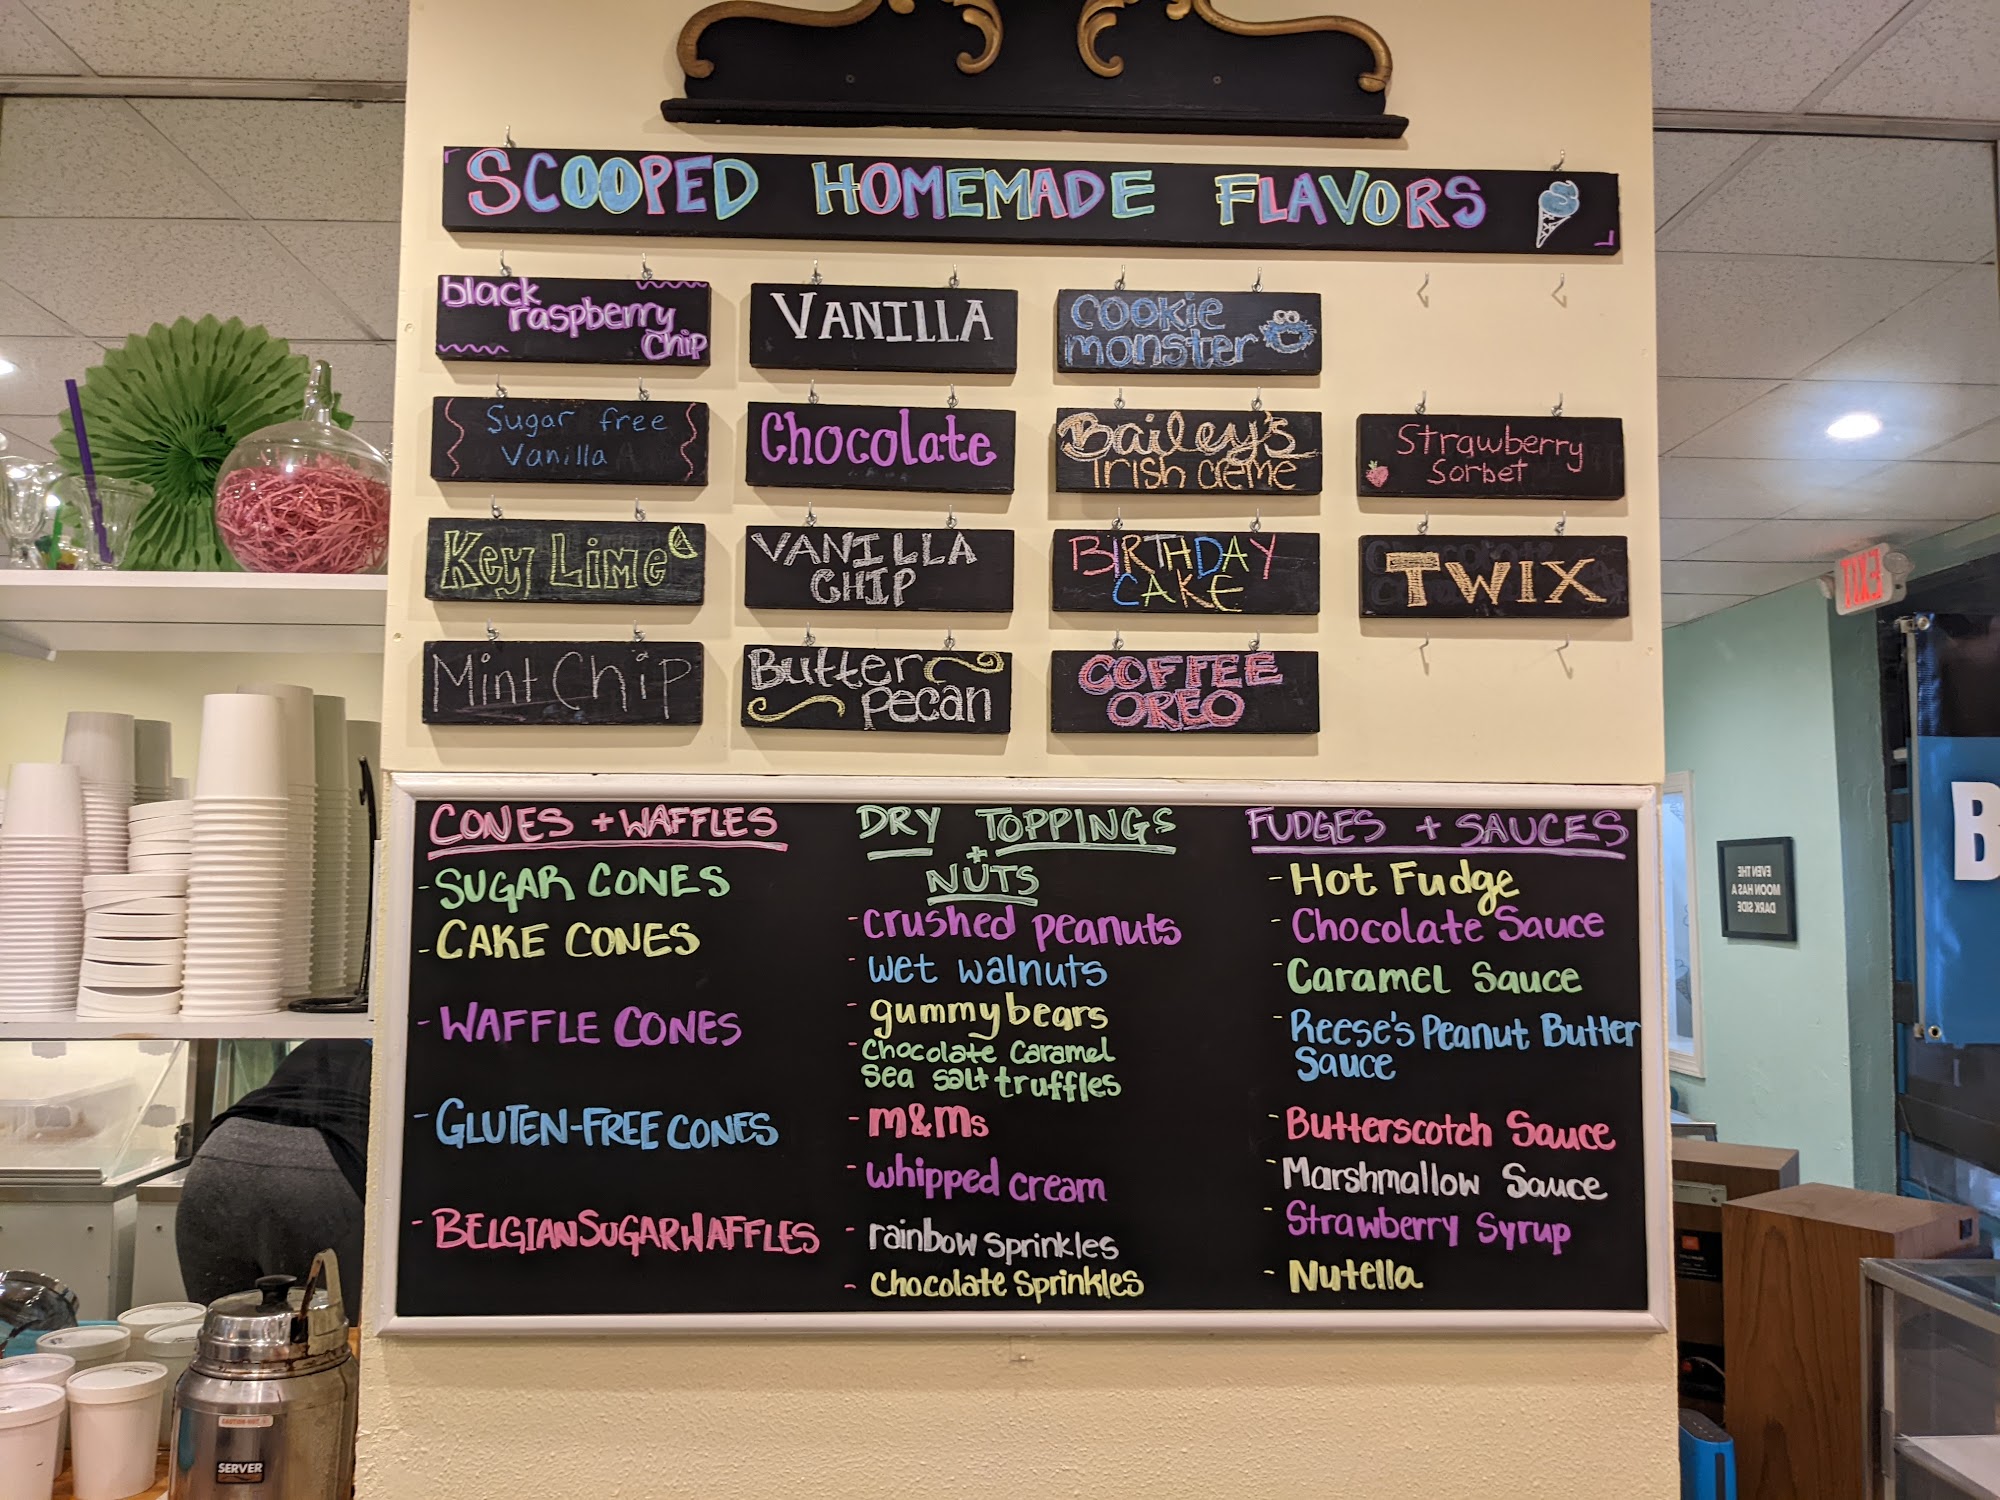 SCOOPED HOMEMADE FLAVORS
black
raspberry
chip
VANILLA
cookie
monster
Sugar free
Vanilla
Chocolate
Bailey's
Irish creme
Strawberry
Sorbet
Key Lime
VANILLA
CHIP
BIRTHDAY
CAKE
TWIX
Mint Chip
Butter
pecan
COFFEE
OREO
CONES + WAFFLES
- SUGAR CONES
- CAKE CONES
- WAFFLE CONES
- GLUTEN-FREE CONES
- BELGIAN SUGAR WAFFLES
DRY TOPPINGS
+
NUTS
- crushed peanuts
- wet walnuts
- gummy bears
- Chocolate Caramel
sea salt truffles
- m&ms
- whipped cream
- rainbow sprinkles
- chocolate sprinkles
FUDGES + SAUCES
- Hot Fudge
- Chocolate Sauce
- Caramel Sauce
- Reese's Peanut Butter
Sauce
- Butterscotch Sauce
- Marshmallow Sauce
- Strawberry Syrup
- Nutella
EXIT
EVEN THE
MOON HAS A
DARK SIDE
B
CAUTION-HOT
SERVER